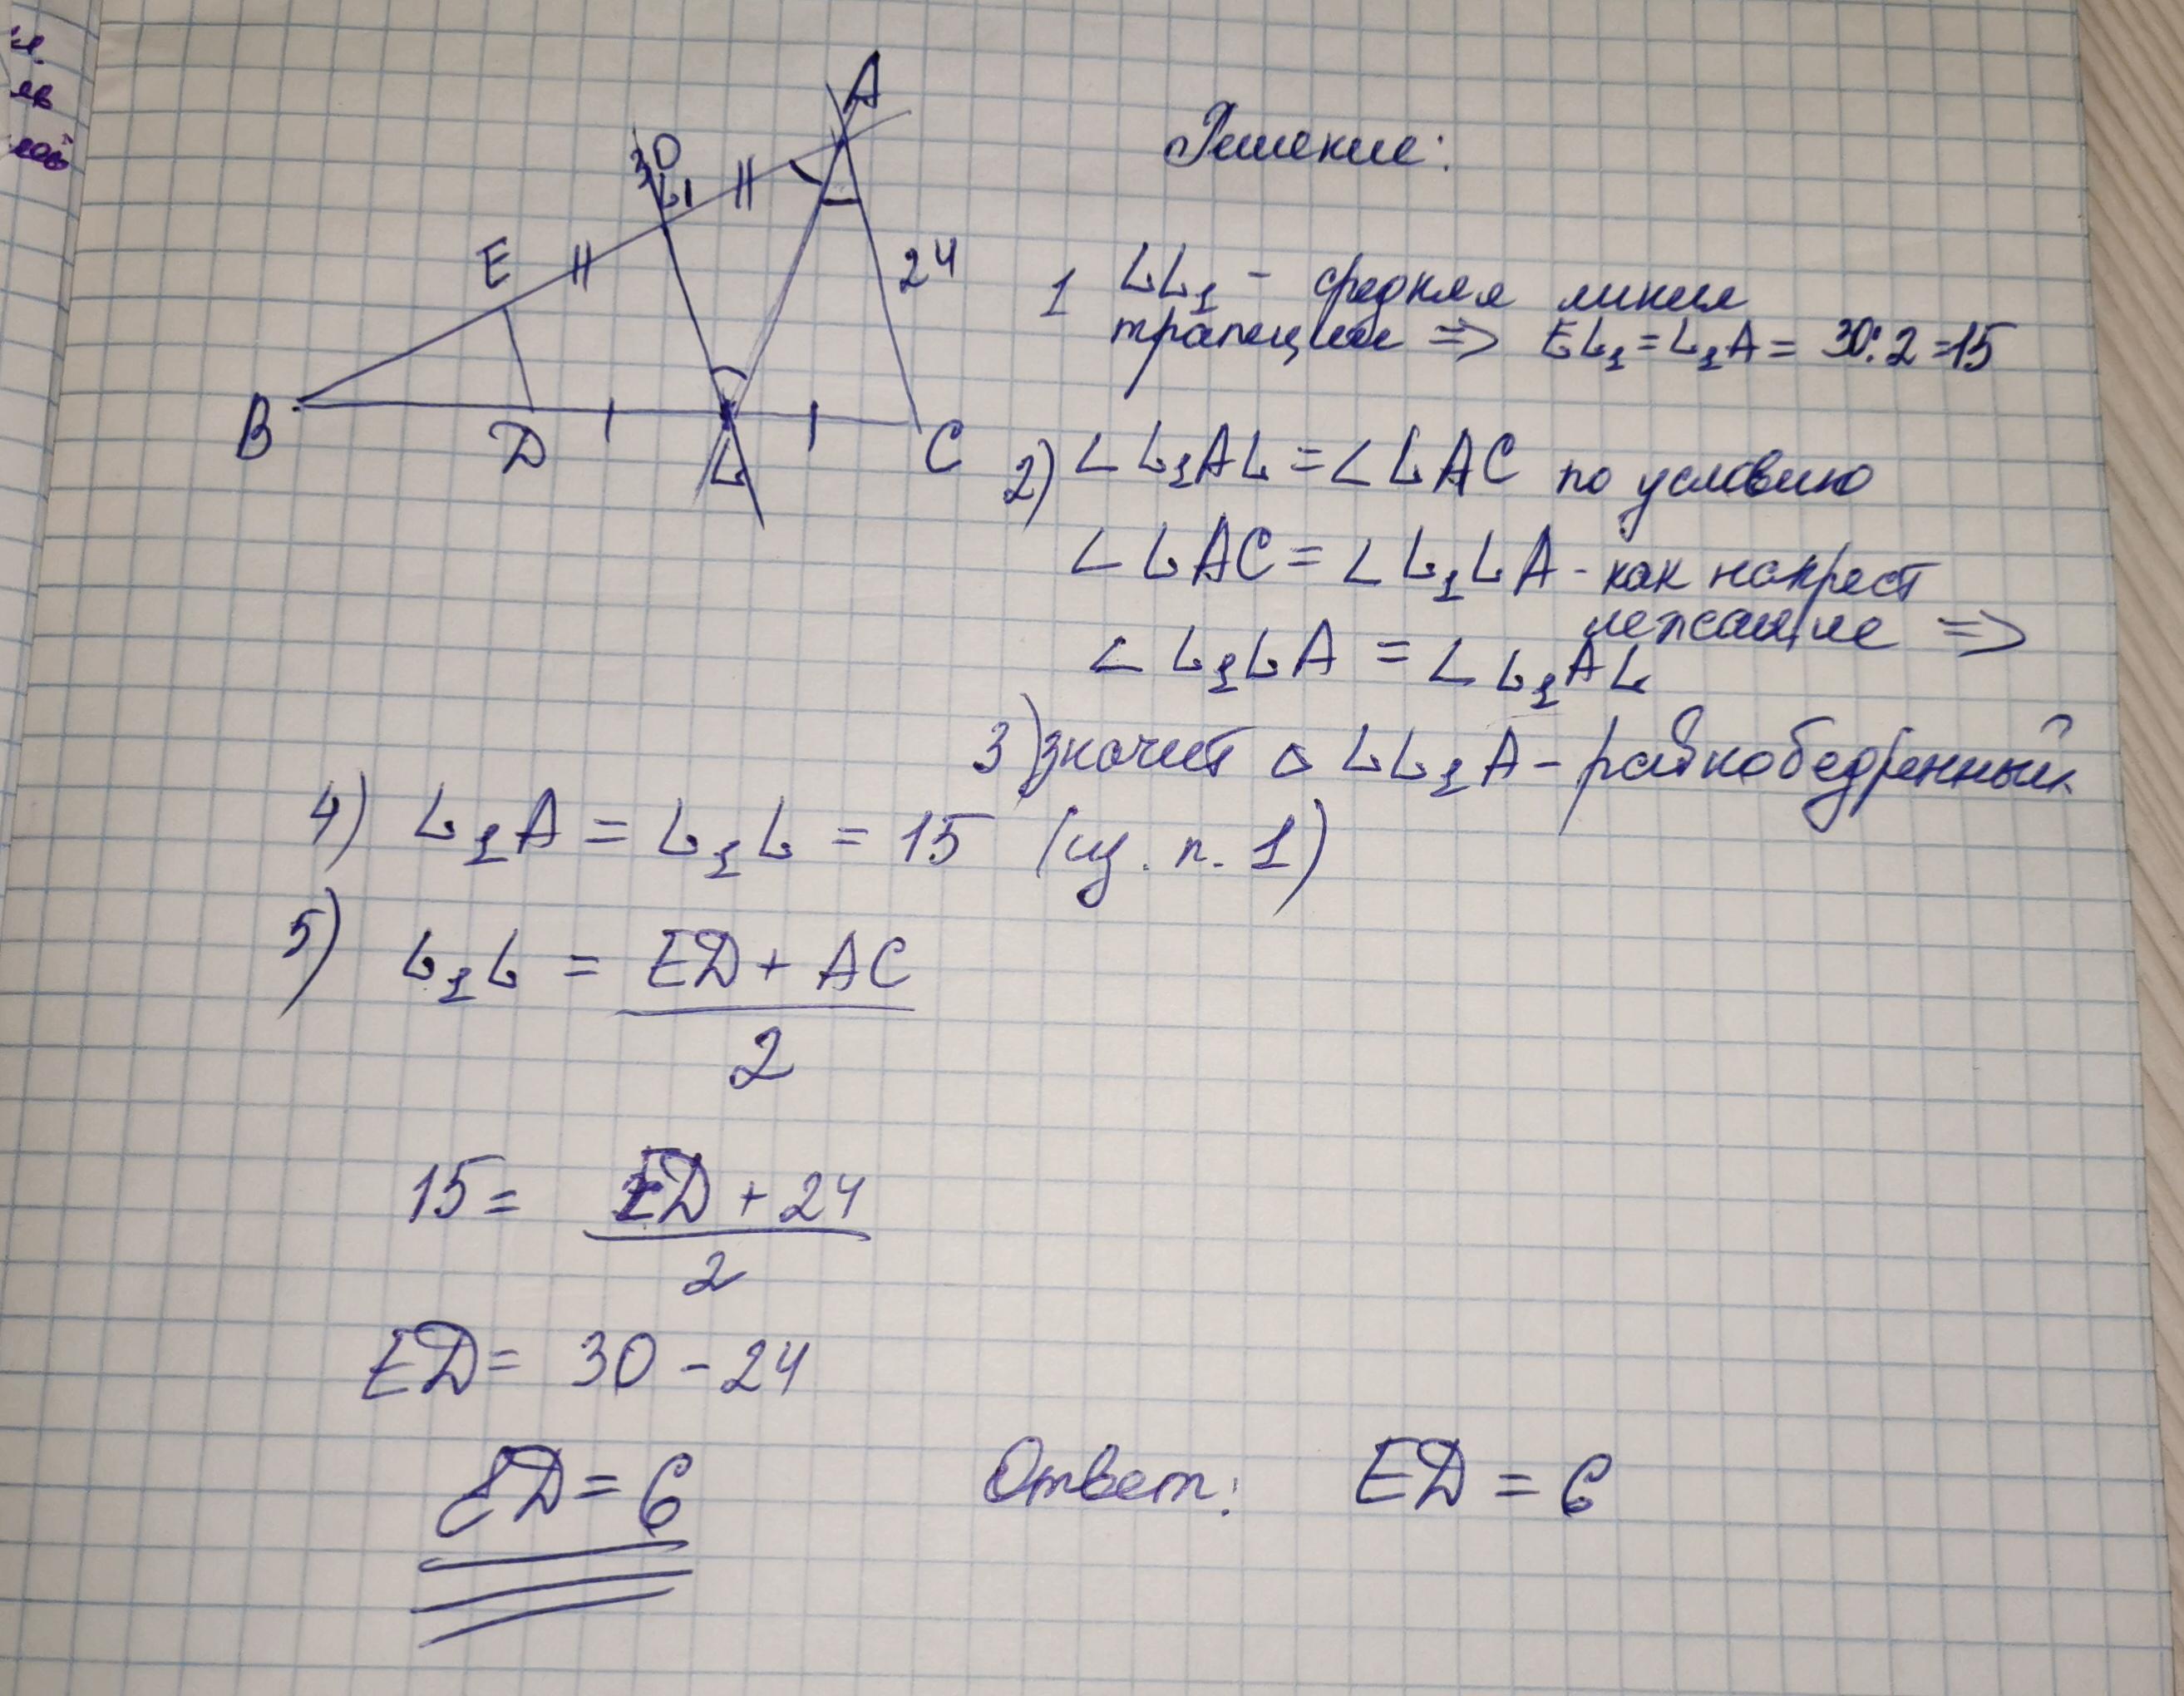 A
30
L1
E
24
B
D
L
C
Решение:
1 LL₁ - средняя линия
трапеции => EL₁ = L₁A = 30:2 = 15
2) ∠L₁AL = ∠LAC по условию
∠LAC = ∠L₁LA - как накрест
лежащие =>
∠L₁LA = ∠L₁AL
3) значит △LL₁A - равнобедренный
4) L₁A = L₁L = 15 (из. п. 1)
5) L₁L = ED + AC
2
15 = ED + 24
2
ED = 30 - 24
ED = 6
Ответ: ED = 6